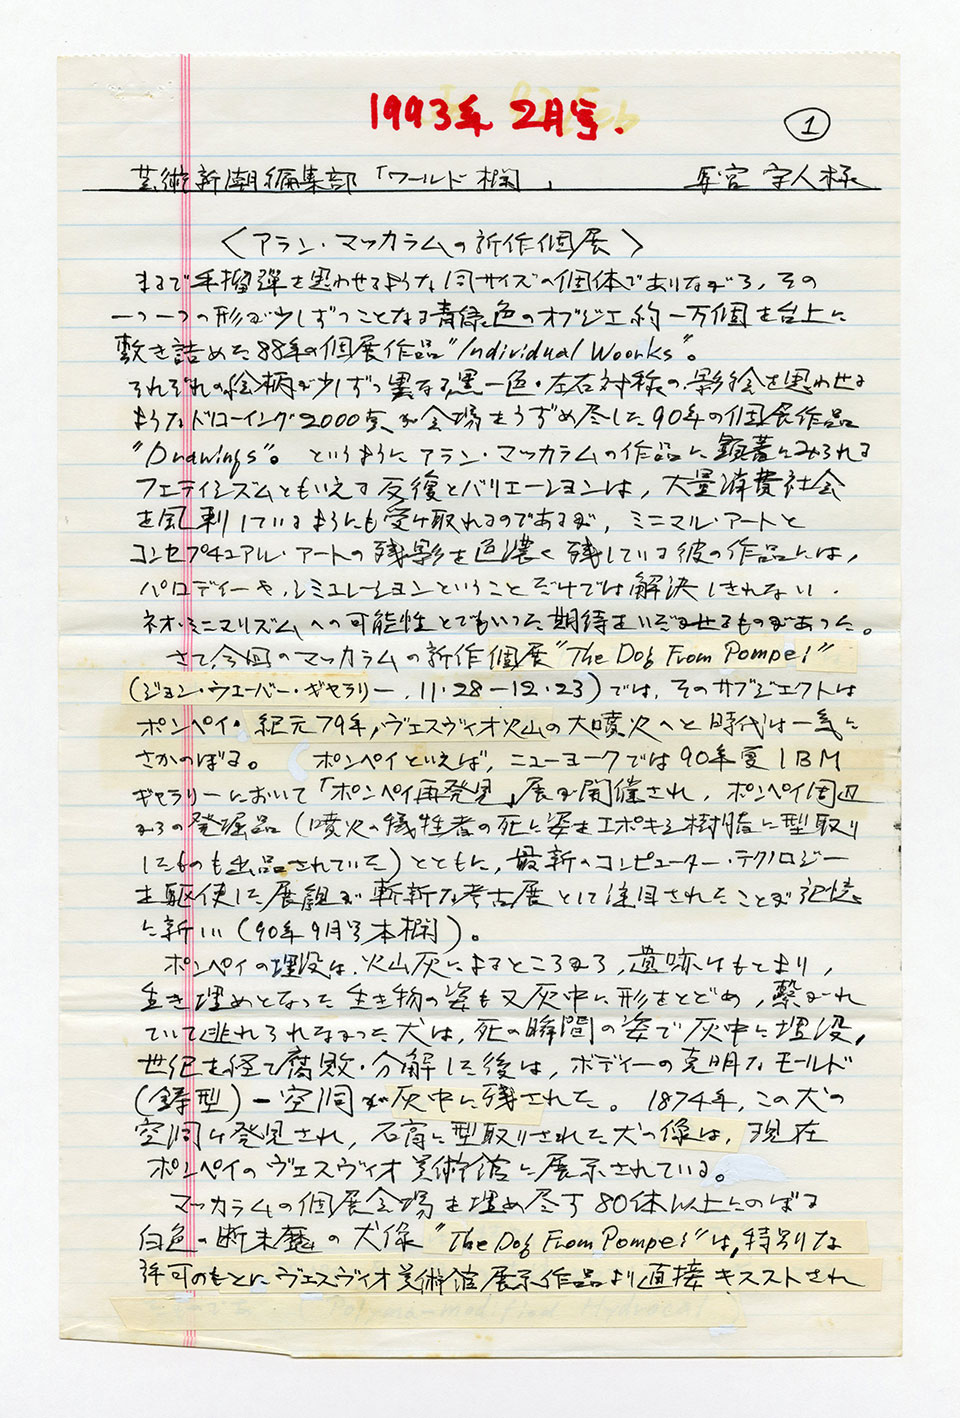 1993年 2月号.
1
芸術新潮編集部「ワールド欄」 馬宮 守人様
〈アラン・マッカラムの新作個展〉
まるで手榴弾を思わせるような同サイズの個体でありながら、その
一つ一つの形が少しずつことなる青緑色のオブジェ約一万個を台上に
敷き詰めた88年の個展作品"Individual Woorks"。
それぞれの絵柄が少しずつ異なる黒一色・左右対称の影絵を思わせる
ようなドローイング2000点が会場をうずめ尽した90年の個展作品
"Drawings"。というように アラン・マッカラムの作品に顕著にみられる
フェティシズムともいえる反復とバリエーションは，大量消費社会
を風刺しているようにも受け取れるのであるが，ミニマル・アートと
コンセプチュアル・アートの残影を色濃く残している彼の作品には，
パロディーや，シミュレーションということだけでは解決しきれない，
ネオ・ミニマリズムへの可能性とでもいった期待をいだかせるものがあった。
さて，今回のマッカラムの新作個展"The Dog From Pompei"
(ジョン・ウエーバー・ギャラリー，11・28－12・23)では，そのサブジェクトは
ポンペイ・紀元79年，ヴェスヴィオ火山の大噴火へと時代は一気に
さかのぼる。 ポンペイといえば，ニューヨークでは90年夏IBM
ギャラリーにおいて「ポンペイ再発見」展が開催され，ポンペイ周辺
からの発掘品（噴火の犠牲者の死に姿をエポキシ樹脂に型取り
したものも出品されていた）とともに，最新のコンピューター・テクノロジー
を駆使した展観が斬新な考古展として注目されたことが記憶
に新しい（90年9月号本欄）。
ポンペイの埋没は，火山灰によるところから，遺跡はもとより，
生き埋めとなった生き物の姿も又灰中に形をとどめ，繋がれ
ていて逃れられなかった犬は，死の瞬間の姿で灰中に埋没，
世紀を経て腐敗・分解した後は，ボディーの克明なモールド
（鋳型）－空洞が灰中に残された。1874年，この犬の
空洞は発見され，石膏に型取りされた犬の像は，現在
ポンペイのヴェスヴィオ美術館に展示されている。
マッカラムの個展会場を埋め尽す80体以上にのぼる
白色の断末魔の犬像"The Dog From Pompei"は，特別な
許可のもとにヴェスヴィオ美術館展示作品より直接キャストされ